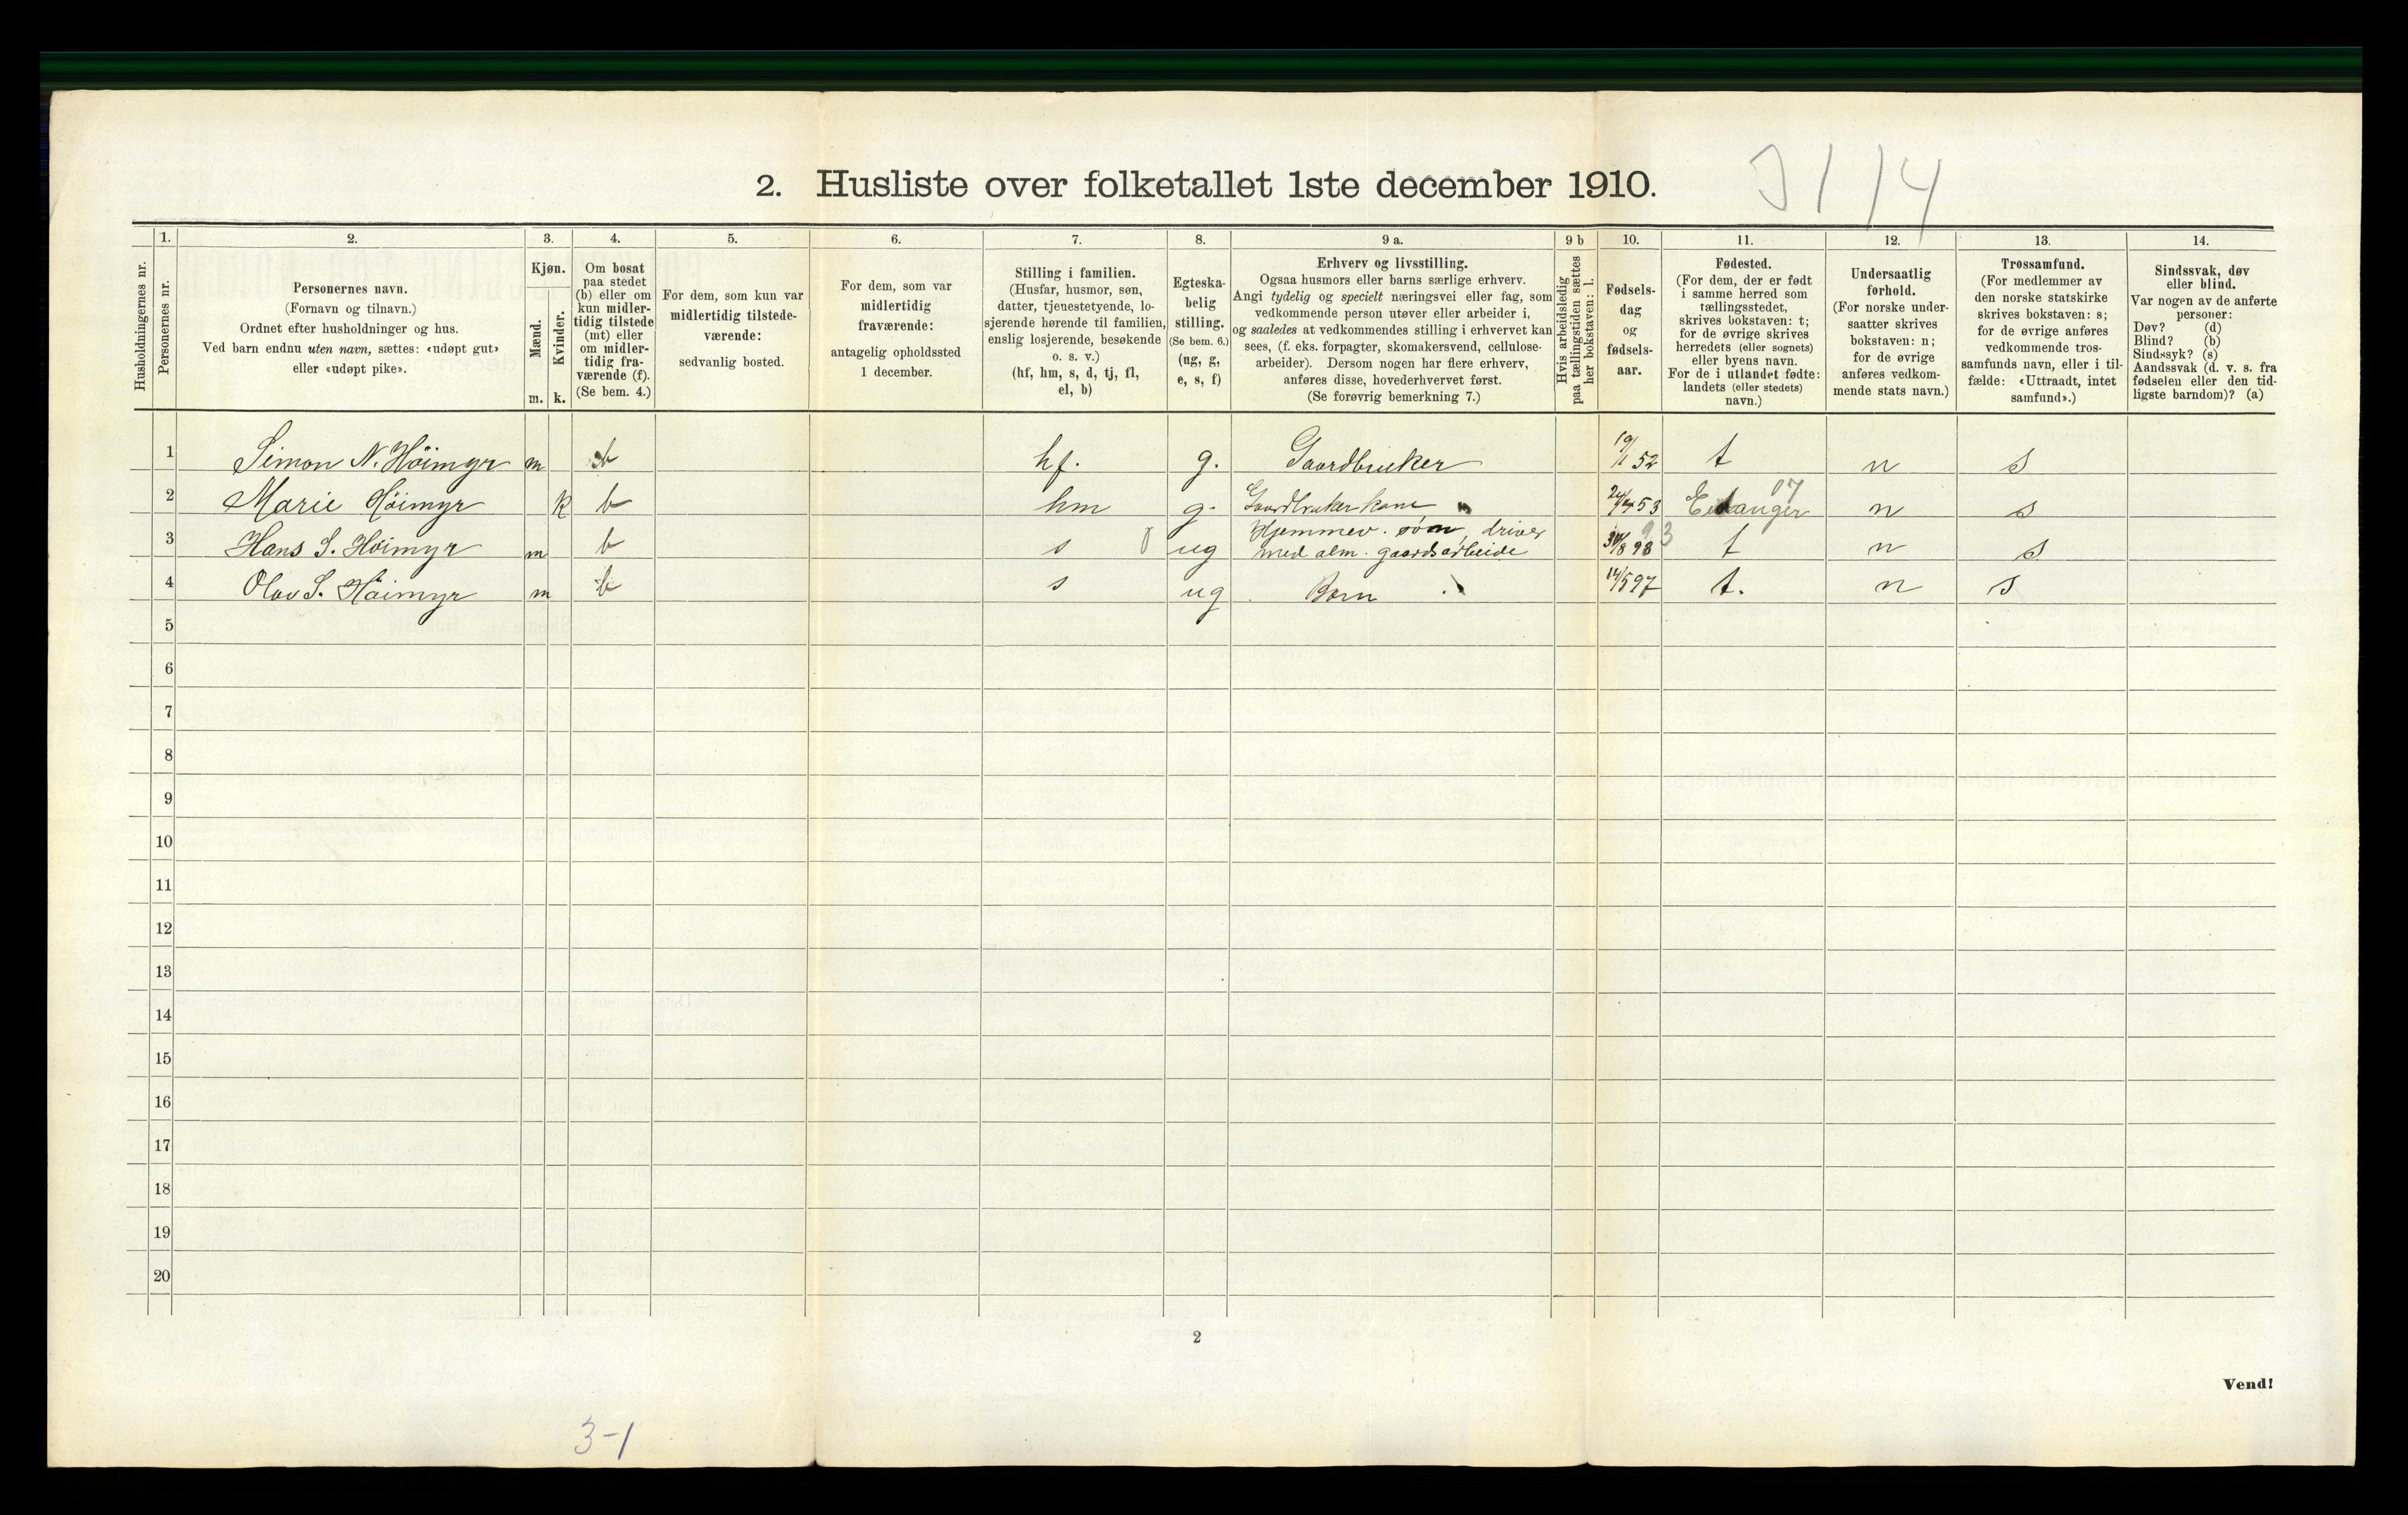 2. Husliste over folketallet 1ste december 1910.
1. 2. 3. 4. 5. 6. 7. 8. 9 a. 9 b 10. 11. 12. 13. 14.
Husholdningernes nr.
Personernes nr.
Personernes navn.
(Fornavn og tilnavn.)
Ordnet efter husholdninger og hus.
Ved barn endnu uten navn, sættes: «udøpt gut»
eller «udøpt pike».
Kjøn.
Mænd.
Kvinder.
m. k.
Om bosat
paa stedet
(b) eller om
kun midler-
tidig tilstede
(mt) eller
om midler-
tidig fra-
værende (f).
(Se bem. 4.)
For dem, som kun var
midlertidig tilstede-
værende:
sedvanlig bosted.
For dem, som var
midlertidig
fraværende:
antagelig opholdssted
1 december.
Stilling i familien.
(Husfar, husmor, søn,
datter, tjenestetyende, lo-
sjerende hørende til familien,
enslig losjerende, besøkende
o. s. v.)
(hf, hm, s, d, tj, fl,
el, b)
Egteska-
belig
stilling.
(Se bem. 6.)
(ug, g,
e, s, f)
Erhverv og livsstilling.
Ogsaa husmors eller barns særlige erhverv.
Angi tydelig og specielt næringsvei eller fag, som
vedkommende person utøver eller arbeider i,
og saaledes at vedkommendes stilling i erhvervet kan
sees, (f. eks. forpagter, skomakersvend, cellulose-
arbeider). Dersom nogen har flere erhverv,
anføres disse, hovederhvervet først.
(Se forøvrig bemerkning 7.)
Hvis arbeidsledig
paa tællingstiden sættes
her bokstaven: l.
Fødsels-
dag
og
fødsels-
aar.
Fødested.
(For dem, der er født
i samme herred som
tællingsstedet,
skrives bokstaven: t;
for de øvrige skrives
herredets (eller sognets)
eller byens navn.
For de i utlandet fødte:
landets (eller stedets)
navn.)
Undersaatlig
forhold.
(For norske under-
saatter skrives
bokstaven: n;
for de øvrige
anføres vedkom-
mende stats navn.)
Trossamfund.
(For medlemmer av
den norske statskirke
skrives bokstaven: s;
for de øvrige anføres
vedkommende tros-
samfunds navn, eller i til-
fælde: «Uttraadt, intet
samfund».)
Sindssvak, døv
eller blind.
Var nogen av de anførte
personer:
Døv? (d)
Blind? (b)
Sindssyk? (s)
Aandssvak (d. v. s. fra
fødselen eller den tid-
ligste barndom)? (a)
1 Simon N. Höimyr m b hf. g. Gaardbruker 19/1 52 t n s
2 Marie Höimyr k b hm g. Gaardbrukerkone 53 07 n s
3 Hans S. Höimyr m b s ug Hjemmev. søn, driver
med alm. gaardsarbeide 93 t n s
4 Olav S. Höimyr m b s ug Barn 14/5 97 t. n s
5
6
7
8
9
10
11
12
13
14
15
16
17
18
19
20
2
Vend!
3-1